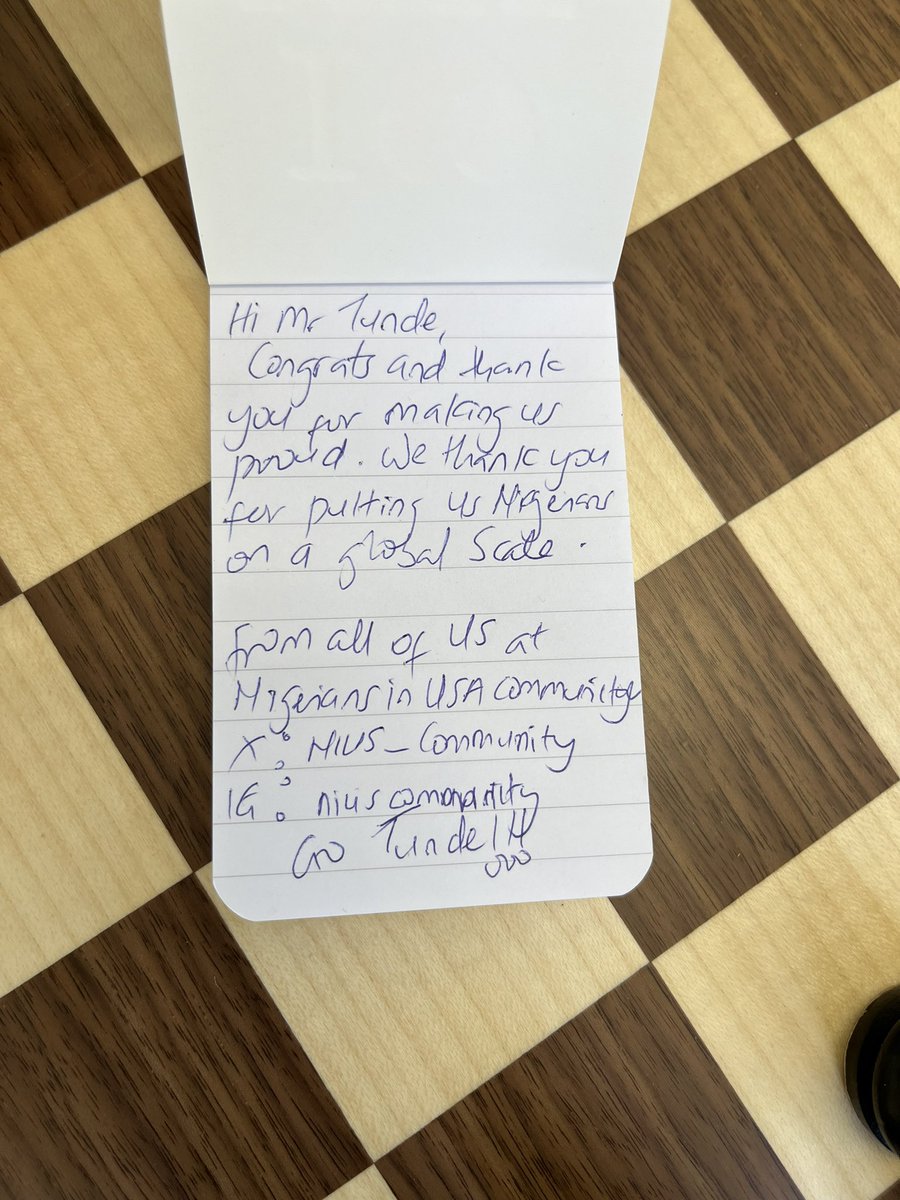 Hi Mr Tunde,
Congrats and thank
you for making us
proud. We thank you
for putting us Nigerians
on a global Scale.
From all of us at
Nigerians in USA community
X: NIUS_Community
IG: nius community
Go Tunde!!!